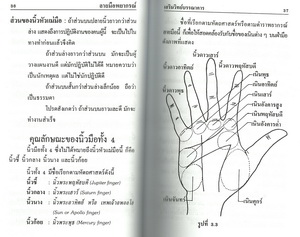 56 ลายมือพยากรณ์
ส่วนของนิ้วหัวแม่มือ : ถ้าส่วนบนปลายนิ้วยาวกว่าส่วน
ล่าง แสดงถึงการปฏิบัติงานของคนผู้นี้ จะเป็นไปใน
ทางทำก่อนแล้วจึงคิด
ถ้าส่วนล่างยาวกว่าส่วนบน มักจะเป็นผู้
วางแผนงานดี แต่มักปฏิบัติไม่ได้ดี หมายความว่า
เป็นนักทฤษฎี แต่ไม่ใช่นักปฏิบัติ
ถ้าส่วนบนสั้นกว่าส่วนล่างเล็กน้อย ถือว่า
เป็นธรรมดา
โปรดสังเกตว่า ถ้าส่วนบนยาวและดี มักจะ
ทำงานสำเร็จ
คุณลักษณะของนิ้วมือทั้ง 4
นิ้วมือทั้ง 4 ซึ่งไม่ได้หมายถึงนิ้วหัวแม่มือนี้ ก็คือ
นิ้วชี้ นิ้วกลาง นิ้วนาง และนิ้วก้อย
นิ้วทั้ง 4 มีชื่อเรียกตามโหดศาสตร์ดังนี้
นิ้วชี้ : นิ้วพระพฤหัสบดี (Jupiter finger)
นิ้วกลาง : นิ้วพระเสาร์ (Saturn finger)
นิ้วนาง : นิ้วพระอาทิตย์ หรือ
(Sun or Apollo finger)
นิ้วก้อย : นิ้วพระพุธ (Mercury finger)
57
ชื่อที่เรียกตามโหดศาสตร์หรือตามตำราพยากรณ์
นิ้วดาวเสาร์
นิ้วดาวพฤหัสบดี
นิ้วดาวอาทิตย์
นิ้วดาวพุธ
เนินพุธ
เนินอาทิตย์
เนินเสาร์
เนินจันทร์
เนินศุกร์
รูปที่ 3.3